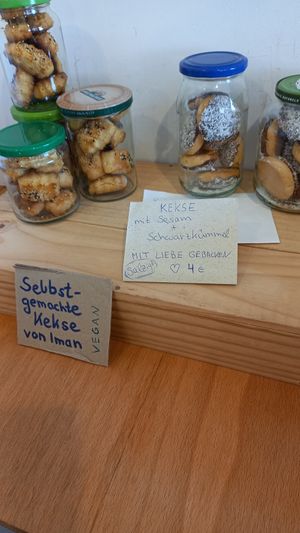 KEKSE
mit Sesam
+
Schwarzkümmel
MIT LIEBE GEBACKEN
Salzig
♡ 4 €
Selbst-
gemachte
Kekse
von Iman
VEGAN